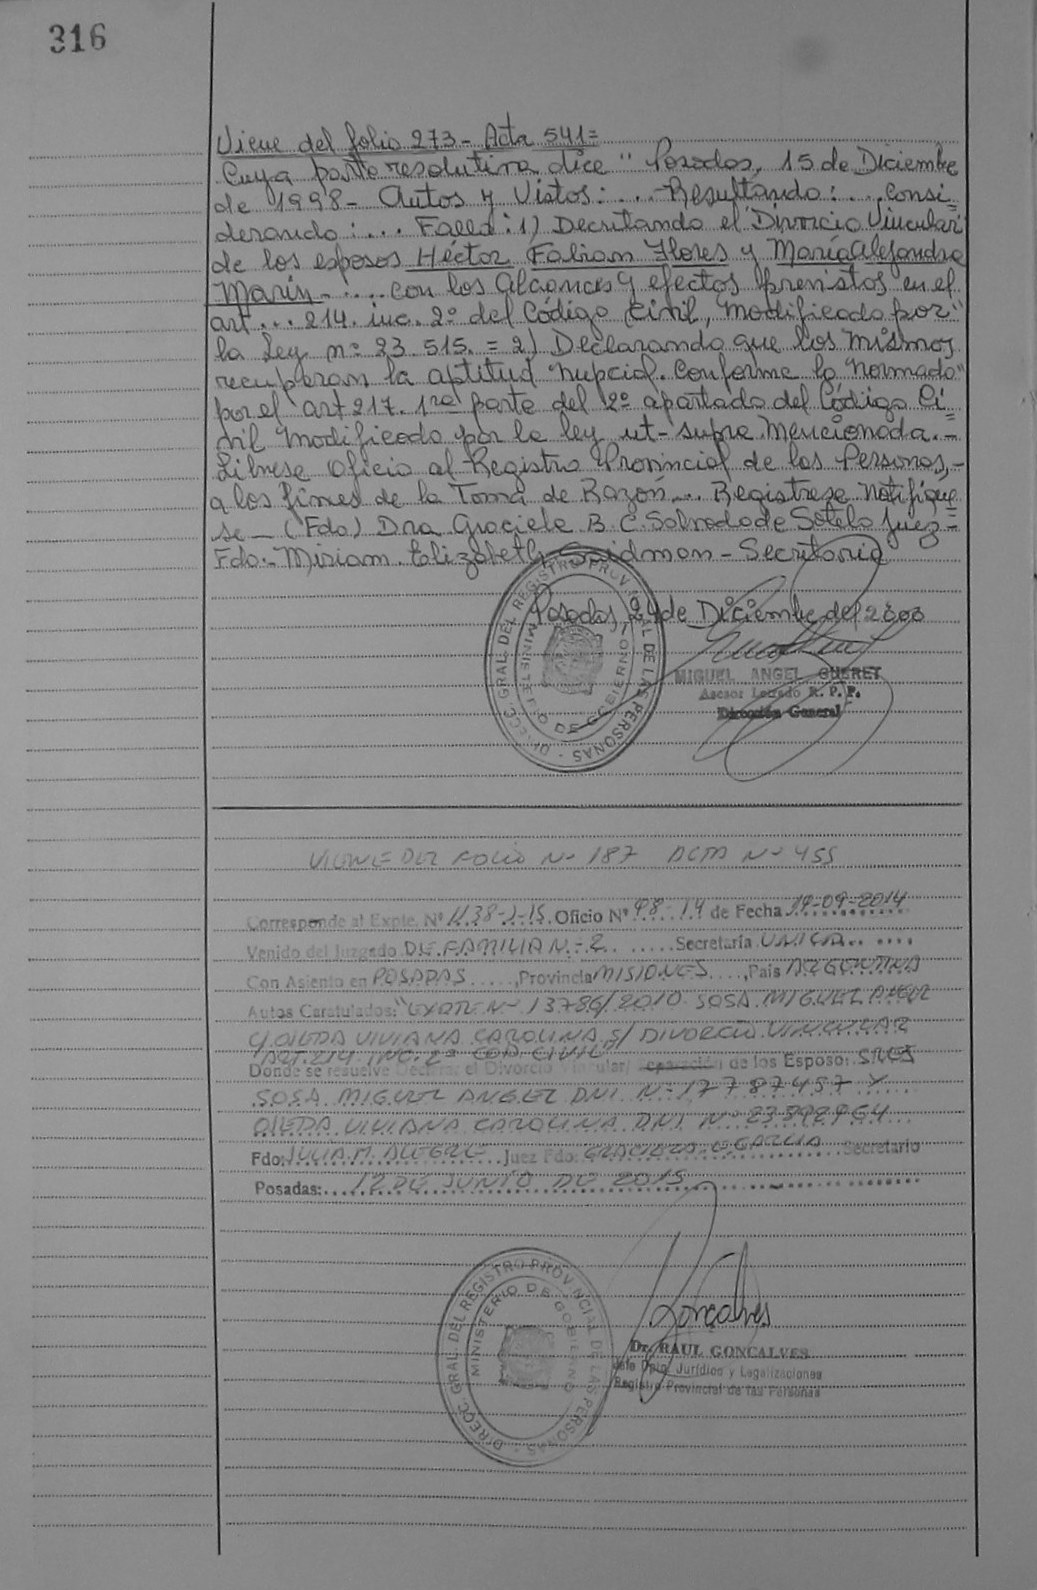 316
Viene del folio 273- Acta 541=
Cuya parte resolutiva dice " Posadas, 15 de Diciembre
de 1998- Autos y Vistos: ... -Resultando: ... Consi=
derando: ... Fallo: 1) Decretando el Divorcio Vincular
de los esposos Héctor Fabian Flores y María Alejandra
Marín- ... con los Alcances y efectos previstos en el
art ... 214. inc. 2º del Código Civil, modificado por"
la Ley nº 23.515. = 2) Declarando que los mismos
recuperan la aptitud nupcial. Conforme lo Normado"
por el art 217. 1ra parte del 2º apartado del Código Ci=
vil modificado por la ley ut-supra mencionada.-
Líbrese oficio al Registro Provincial de las Personas,-
a los fines de la Toma de Razón... Registrese Notifique
se - (Fdo) Dra Graciela B. C. de Sotelo Juez=
Fdo.- Miriam Elizabeth - Secretaria
Posadas 24 de Diciembre del 2003
DIRECC. GRAL. DEL REGISTRO PROVINCIAL DE LAS PERSONAS
MINISTERIO DE GOBIERNO
MIGUEL ANGEL GUERET
Asesor Letrado R. P. P.
Dirección General
VIENE DEL FOLIO Nº 187 ACTA Nº 455
Corresponde al Expte. Nº 1138-J-15. Oficio Nº 98-14 de Fecha 19-09-2014
Venido del Juzgado DE FAMILIA Nº 2 ..... Secretaria UNICA
Con Asiento en POSADAS ....., Provincia MISIONES ...., Pais ARGENTINA
Autos Caratulados: "EXPTE Nº 13786/2010 SOSA MIGUEL ANGEL
C/ OJEDA VIVIANA CAROLINA S/ DIVORCIO VINCULAR
ART. 214 INC. 2º COD. CIVIL"
Donde se resuelve Declarar el Divorcio Vincular/ Separación de los Esposo: SRES
SOSA MIGUEL ANGEL DNI Nº 17787457 Y
OJEDA VIVIANA CAROLINA D.N.I. Nº 23898964
Fdo: JULIA M. ALEGRE Juez Fdo: GRACIELA GARCIA Secretario
Posadas: 12 DE JUNIO DE 2015
DIRECC. GRAL. DEL REGISTRO PROVINCIAL DE LAS PERSONAS
MINISTERIO DE GOBIERNO
Gonçalves
Dr. RAUL GONCALVES
Jefe Dpto. Jurídico y Legalizaciones
Registro Provincial de las Personas